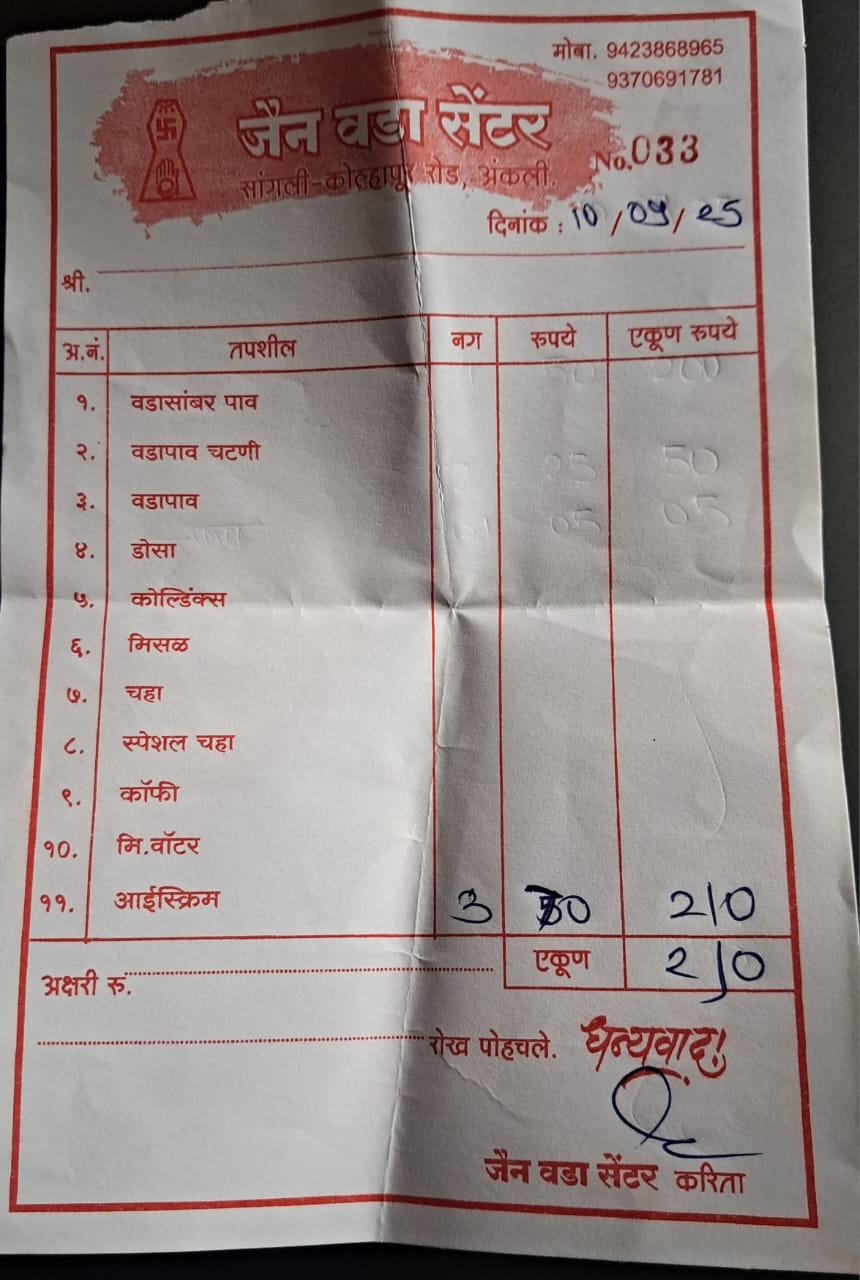 मोबा. 9423868965
9370691781
जैन वडा सेंटर
सांगली-कोल्हापूर रोड, अंकली.
No. 033
दिनांक : 10/09/25
श्री.
अ.नं. तपशील नग रुपये एकूण रुपये
१. वडासांबर पाव
२. वडापाव चटणी
३. वडापाव
४. डोसा
५. कोल्डिंक्स
६. मिसळ
७. चहा
८. स्पेशल चहा
९. कॉफी
१०. मि.वॉटर
११. आईस्क्रिम 3 70 210
एकूण 210
अक्षरी रु.
रोख पोहचले. धन्यवाद!
जैन वडा सेंटर करिता